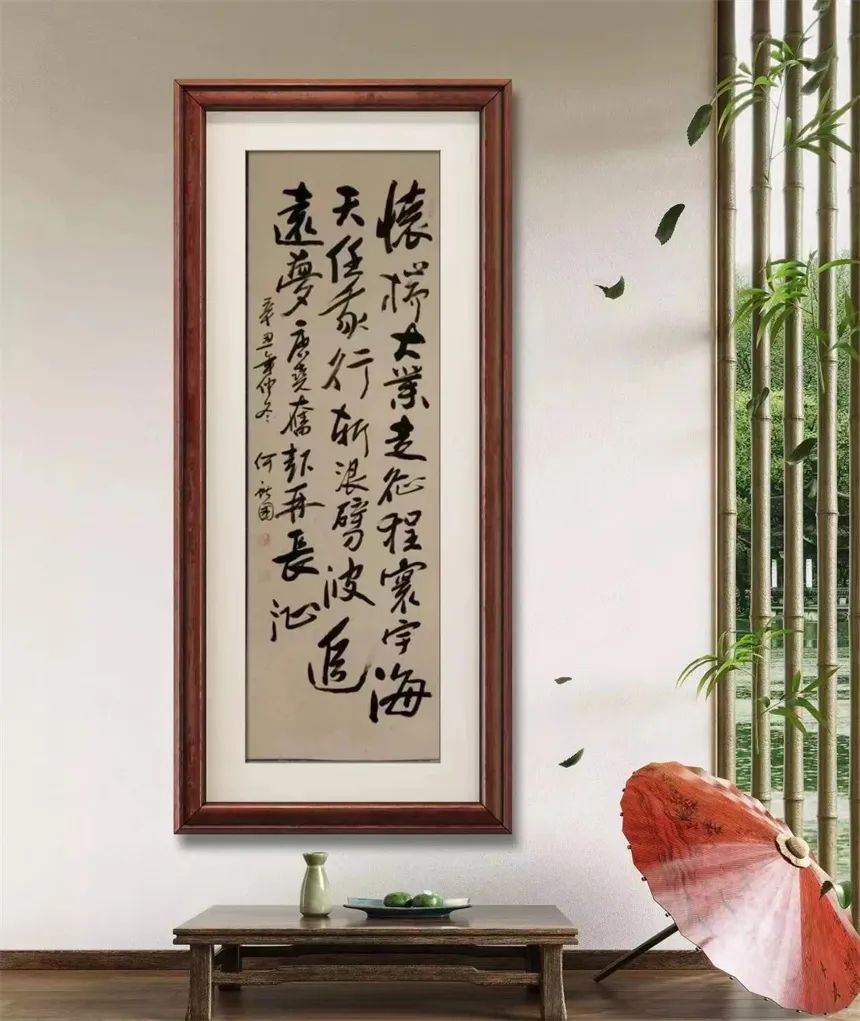 懷揣大業走征程寰宇海
天任我行斬浪劈波追
遠夢奮再長
辛丑年仲冬 何國